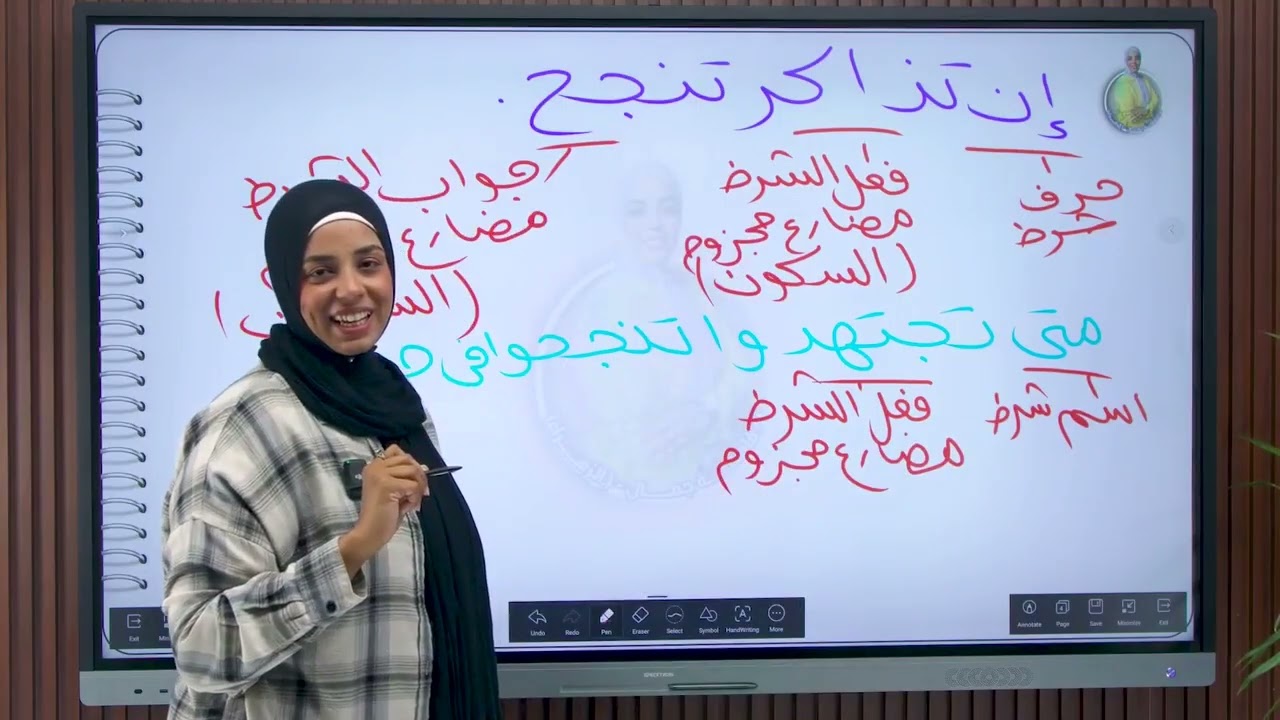 إن تذاكر تنجح .
حرف فعل الشرط جواب الشرط
شرط مضارع مجزوم مضارع
(السكون)
متى تجتهدوا تنجحوا فى
اسم شرط فعل الشرط
مضارع مجزوم
Exit
Undo Redo Pen Eraser Select Symbol HandWriting More
Annotate Page Save Minimize Exit